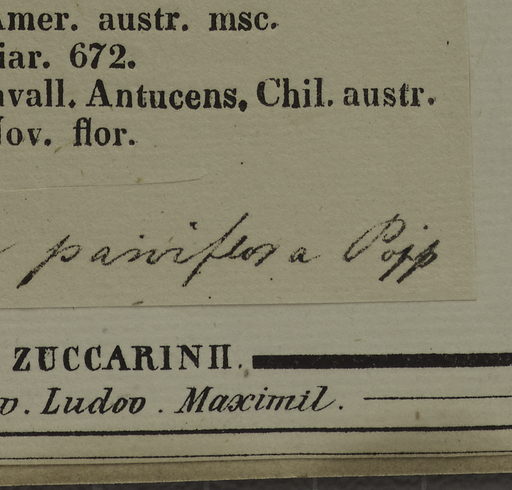 Amer. austr. msc.
iar. 672.
vall. Antucens, Chil. austr.
Nov. flor.
parviflora Pöpp
ZUCCARINII.
v. Ludov. Maximil.